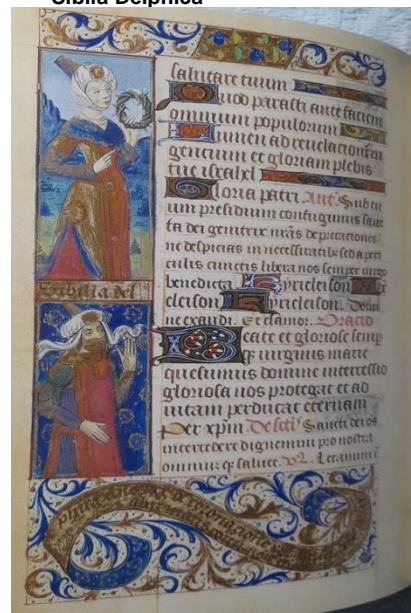 Sibila Délphica
salutare tuum
Quod parasti ante faciem
omnium populorum
Lumen ad revelationem
gentium et gloriam plebis
tue israhel
Gloria patri. Ant. Sub tu
um presidium confugimus sanc
ta dei genitrix nras deprecationes
ne despicias in necessitatibus sed a peri
culis cunctis libera nos semper virgo
benedicta Kyrieleison Xpe
eleison Kyrieleison. Domi
ne exaudi. Et clamor. Oracio
Beate et gloriose semp
q virginis marie
quesumus domine intercessio
gloriosa nos protegat et ad
vitam perducat eternam
Per xpm De scti Sancti dei oes
intercedere dignemini pro nostra
omnium q salute. V. Letamini
Sibilla del